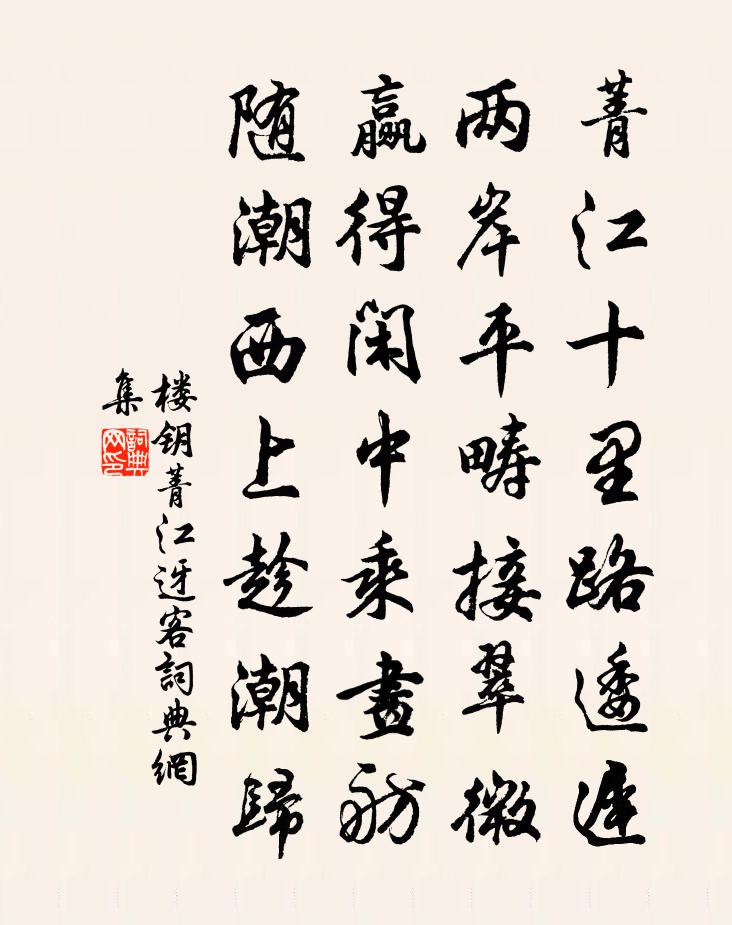 菁江十里路逶遲
两岸平畴接翠微
贏得闲中乘畫舫
随潮西上趁潮歸
楼钥菁江迓客詞典網
集
詞典
网印